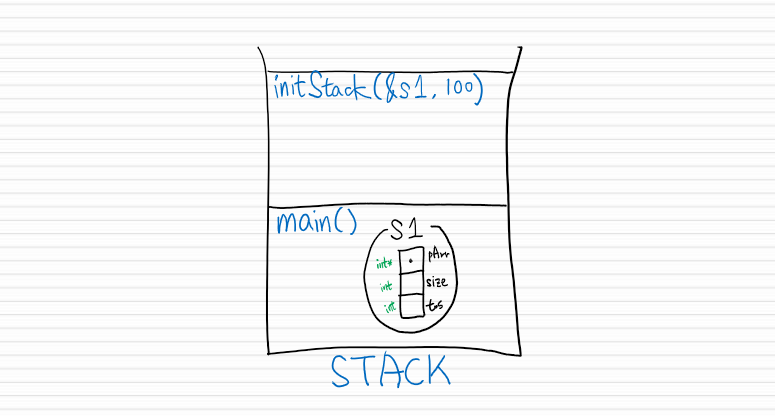 initStack(&s1, 100)
main()
S1
int* pArr
int size
int tos
STACK